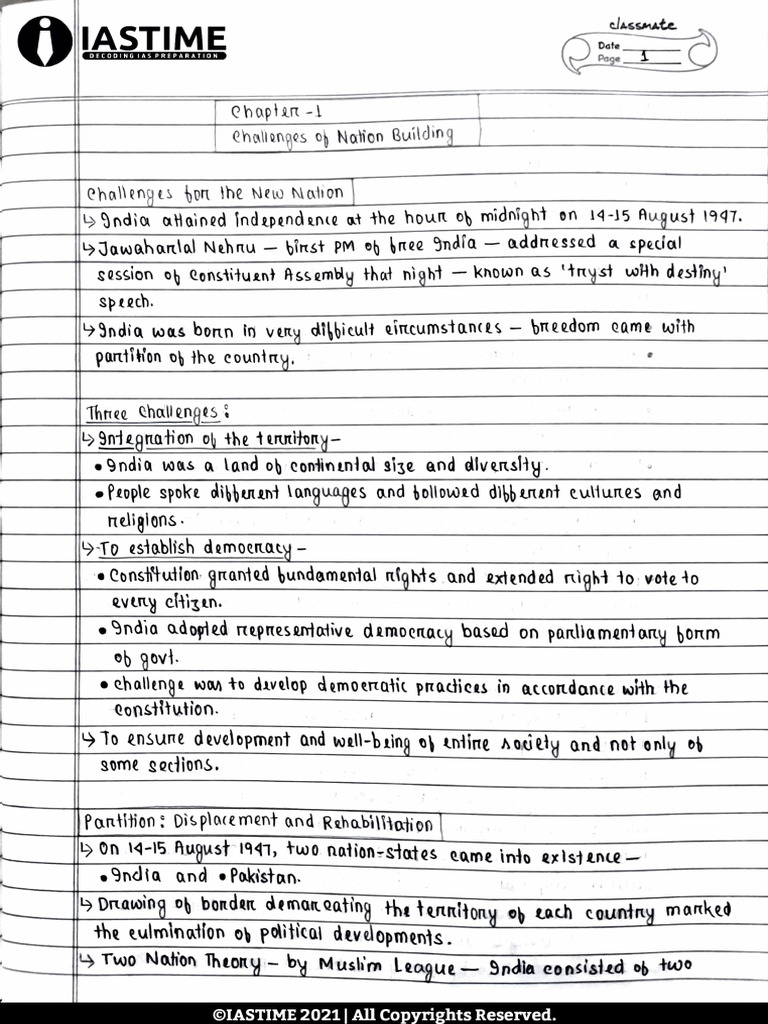 IASTIME
DECODING IAS PREPARATION
classmate
Date
Page 1
Chapter -1
Challenges of Nation Building
Challenges for the New Nation
↳ India attained independence at the hour of midnight on 14-15 August 1947.
↳ Jawaharlal Nehru — first PM of free India — addressed a special
session of Constituent Assembly that night — known as 'tryst with destiny'
speech.
↳ India was born in very difficult circumstances — freedom came with
partition of the country.
Three Challenges:
↳ Integration of the territory—
• India was a land of continental size and diversity.
• People spoke different languages and followed different cultures and
religions.
↳ To establish democracy—
• Constitution granted fundamental rights and extended right to vote to
every citizen.
• India adopted representative democracy based on parliamentary form
of govt.
• challenge was to develop democratic practices in accordance with the
constitution.
↳ To ensure development and well-being of entire society and not only of
some sections.
Partition: Displacement and Rehabilitation
↳ On 14-15 August 1947, two nation-states came into existence—
• India and • Pakistan.
↳ Drawing of border demarcating the territory of each country marked
the culmination of political developments.
↳ Two Nation Theory — by Muslim League — India consisted of two
©IASTIME 2021| All Copyrights Reserved.